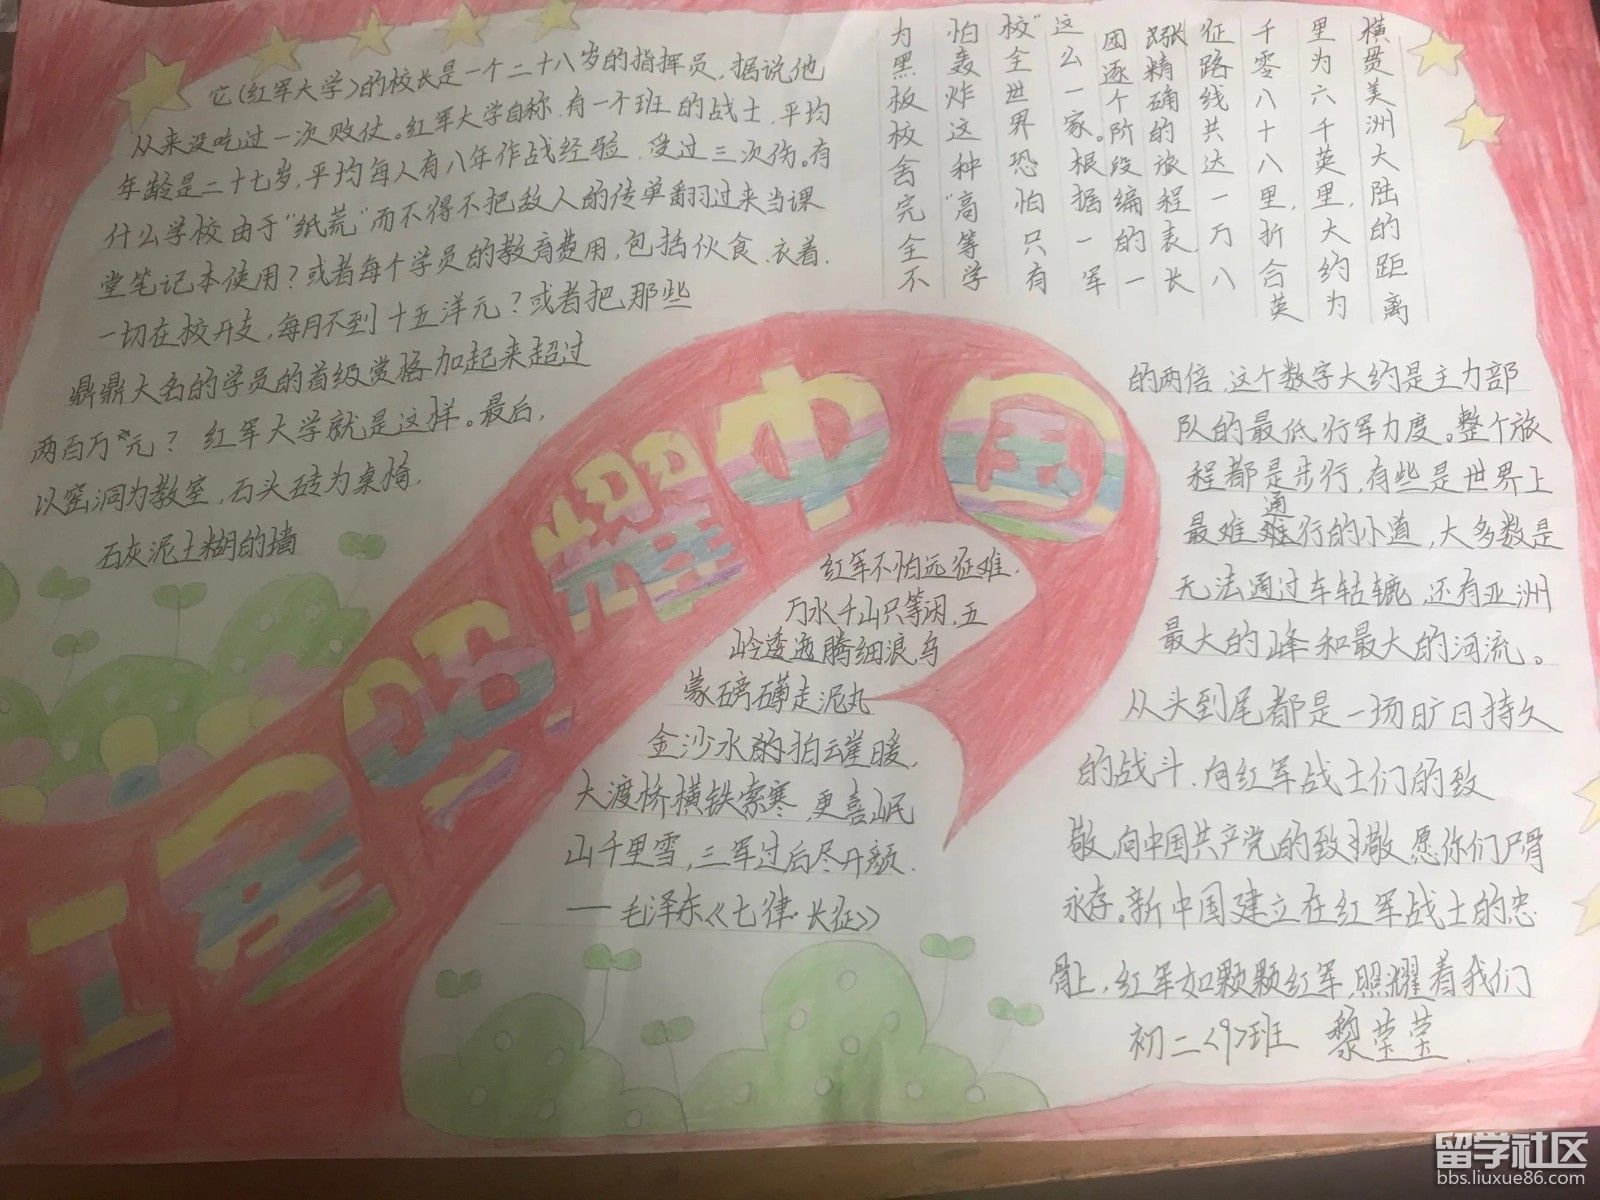 它(红军大学)的校长是一个二十八岁的指挥员,据说他
从来没吃过一次败仗。红军大学自称,有一个班的战士,平均
年龄是二十七岁,平均每人有八年作战经验,受过三次伤。有
什么学校由于"纸荒"而不得不把敌人的传单翻过来当课
堂笔记本使用?或者每个学员的教育费用,包括伙食、衣着、
一切在校开支,每月不到十五洋元?或者把那些
鼎鼎大名的学员的首级赏格加起来超过
两百万元? 红军大学就是这样。最后,
以窑洞为教室,石头砖为桌椅,
石灰泥土糊的墙
为黑板校舍完全不
怕轰炸这种"高等学
校"全世界恐怕只有
这么一家。根据一军
团逐个阶段编的一
张精确的旅程表,长
征路线共达一万八
千零八十八里,折合英
里为六千英里,大约为
横贯美洲大陆的距离
的两倍,这个数字大约是主力部
队的最低行军力度。整个旅
程都是步行,有些是世界上
最难通行的小道,大多数是
无法通过车轱辘,还有亚洲
最大的峰和最大的河流。
从头到尾都是一场旷日持久
的战斗,向红军战士们的致
敬,向中国共产党的致敬,愿你们
永存。新中国建立在红军战士的忠
骨上,红军如颗颗红军,照耀着我们
初二<9>班 黎莹莹
红星照耀中国
红军不怕远征难,
万水千山只等闲,五
岭逶迤腾细浪,乌
蒙磅礴走泥丸
金沙水的拍云崖暖,
大渡桥横铁索寒,更喜岷
山千里雪,三军过后尽开颜.
——毛泽东《七律·长征》
留学社区
bbs.liuxue86.com